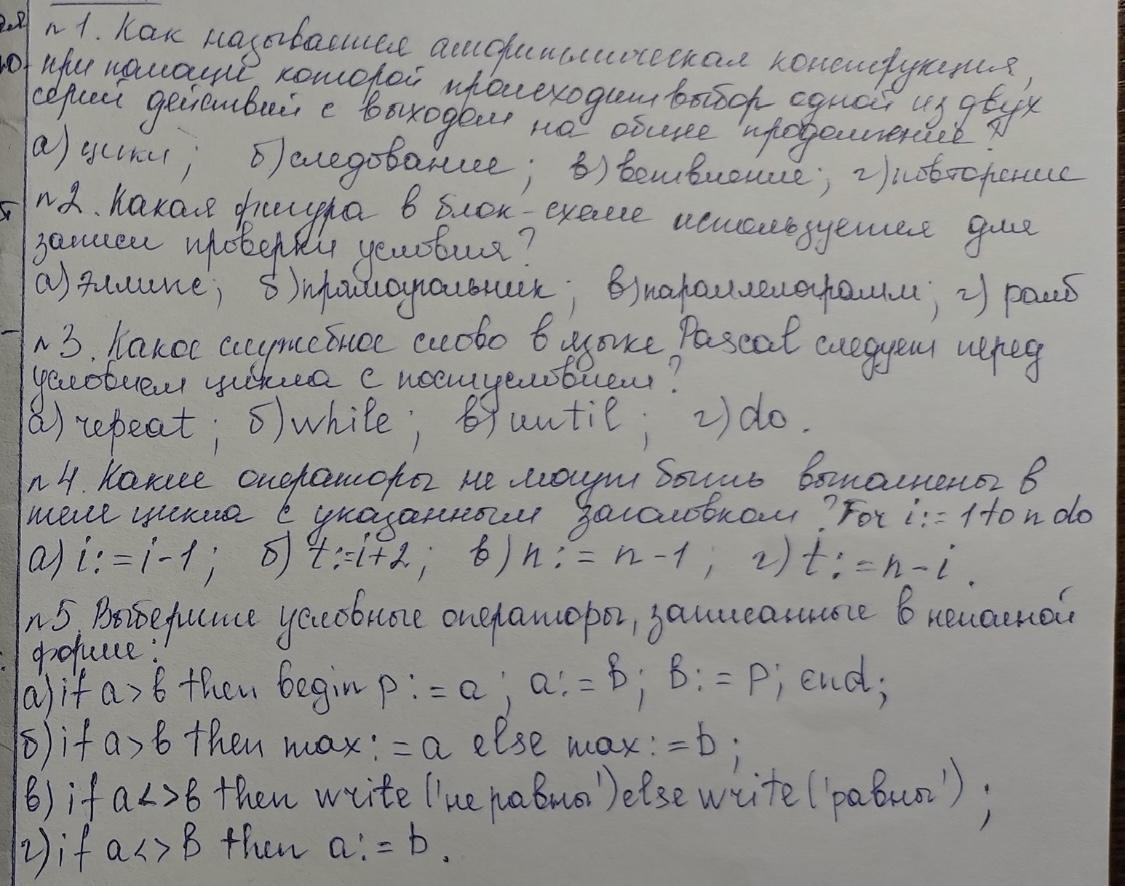 п1. Как называется алгоритмическая конструкция,
при помощи которой происходит выбор одной из двух
серий действий с выходом на общее продолжение?
а) цикл; б) следование; в) ветвление; г) повторение
п2. Какая фигура в блок-схеме используется для
записи проверки условия?
а) эллипс; б) прямоугольник; в) параллелограмм; г) ромб
п3. Какое служебное слово в языке Pascal следует перед
условием цикла с постусловием?
а) repeat; б) while; в) until; г) do.
п4. Какие операторы не могут быть выполнены в
теле цикла с указанным заголовком? For i:= 1 to n do
а) i:= i-1; б) t:=i+2; в) n:= n-1; г) t:= n-i.
п5. Выберите условные операторы, записанные в неполной
форме:
а) if a>b then begin p:= a; a:= b; b:= p; end;
б) if a>b then max:= a else max:= b;
в) if a<>b then write ('не равны') else write ('равны');
г) if a<>b then a:= b.